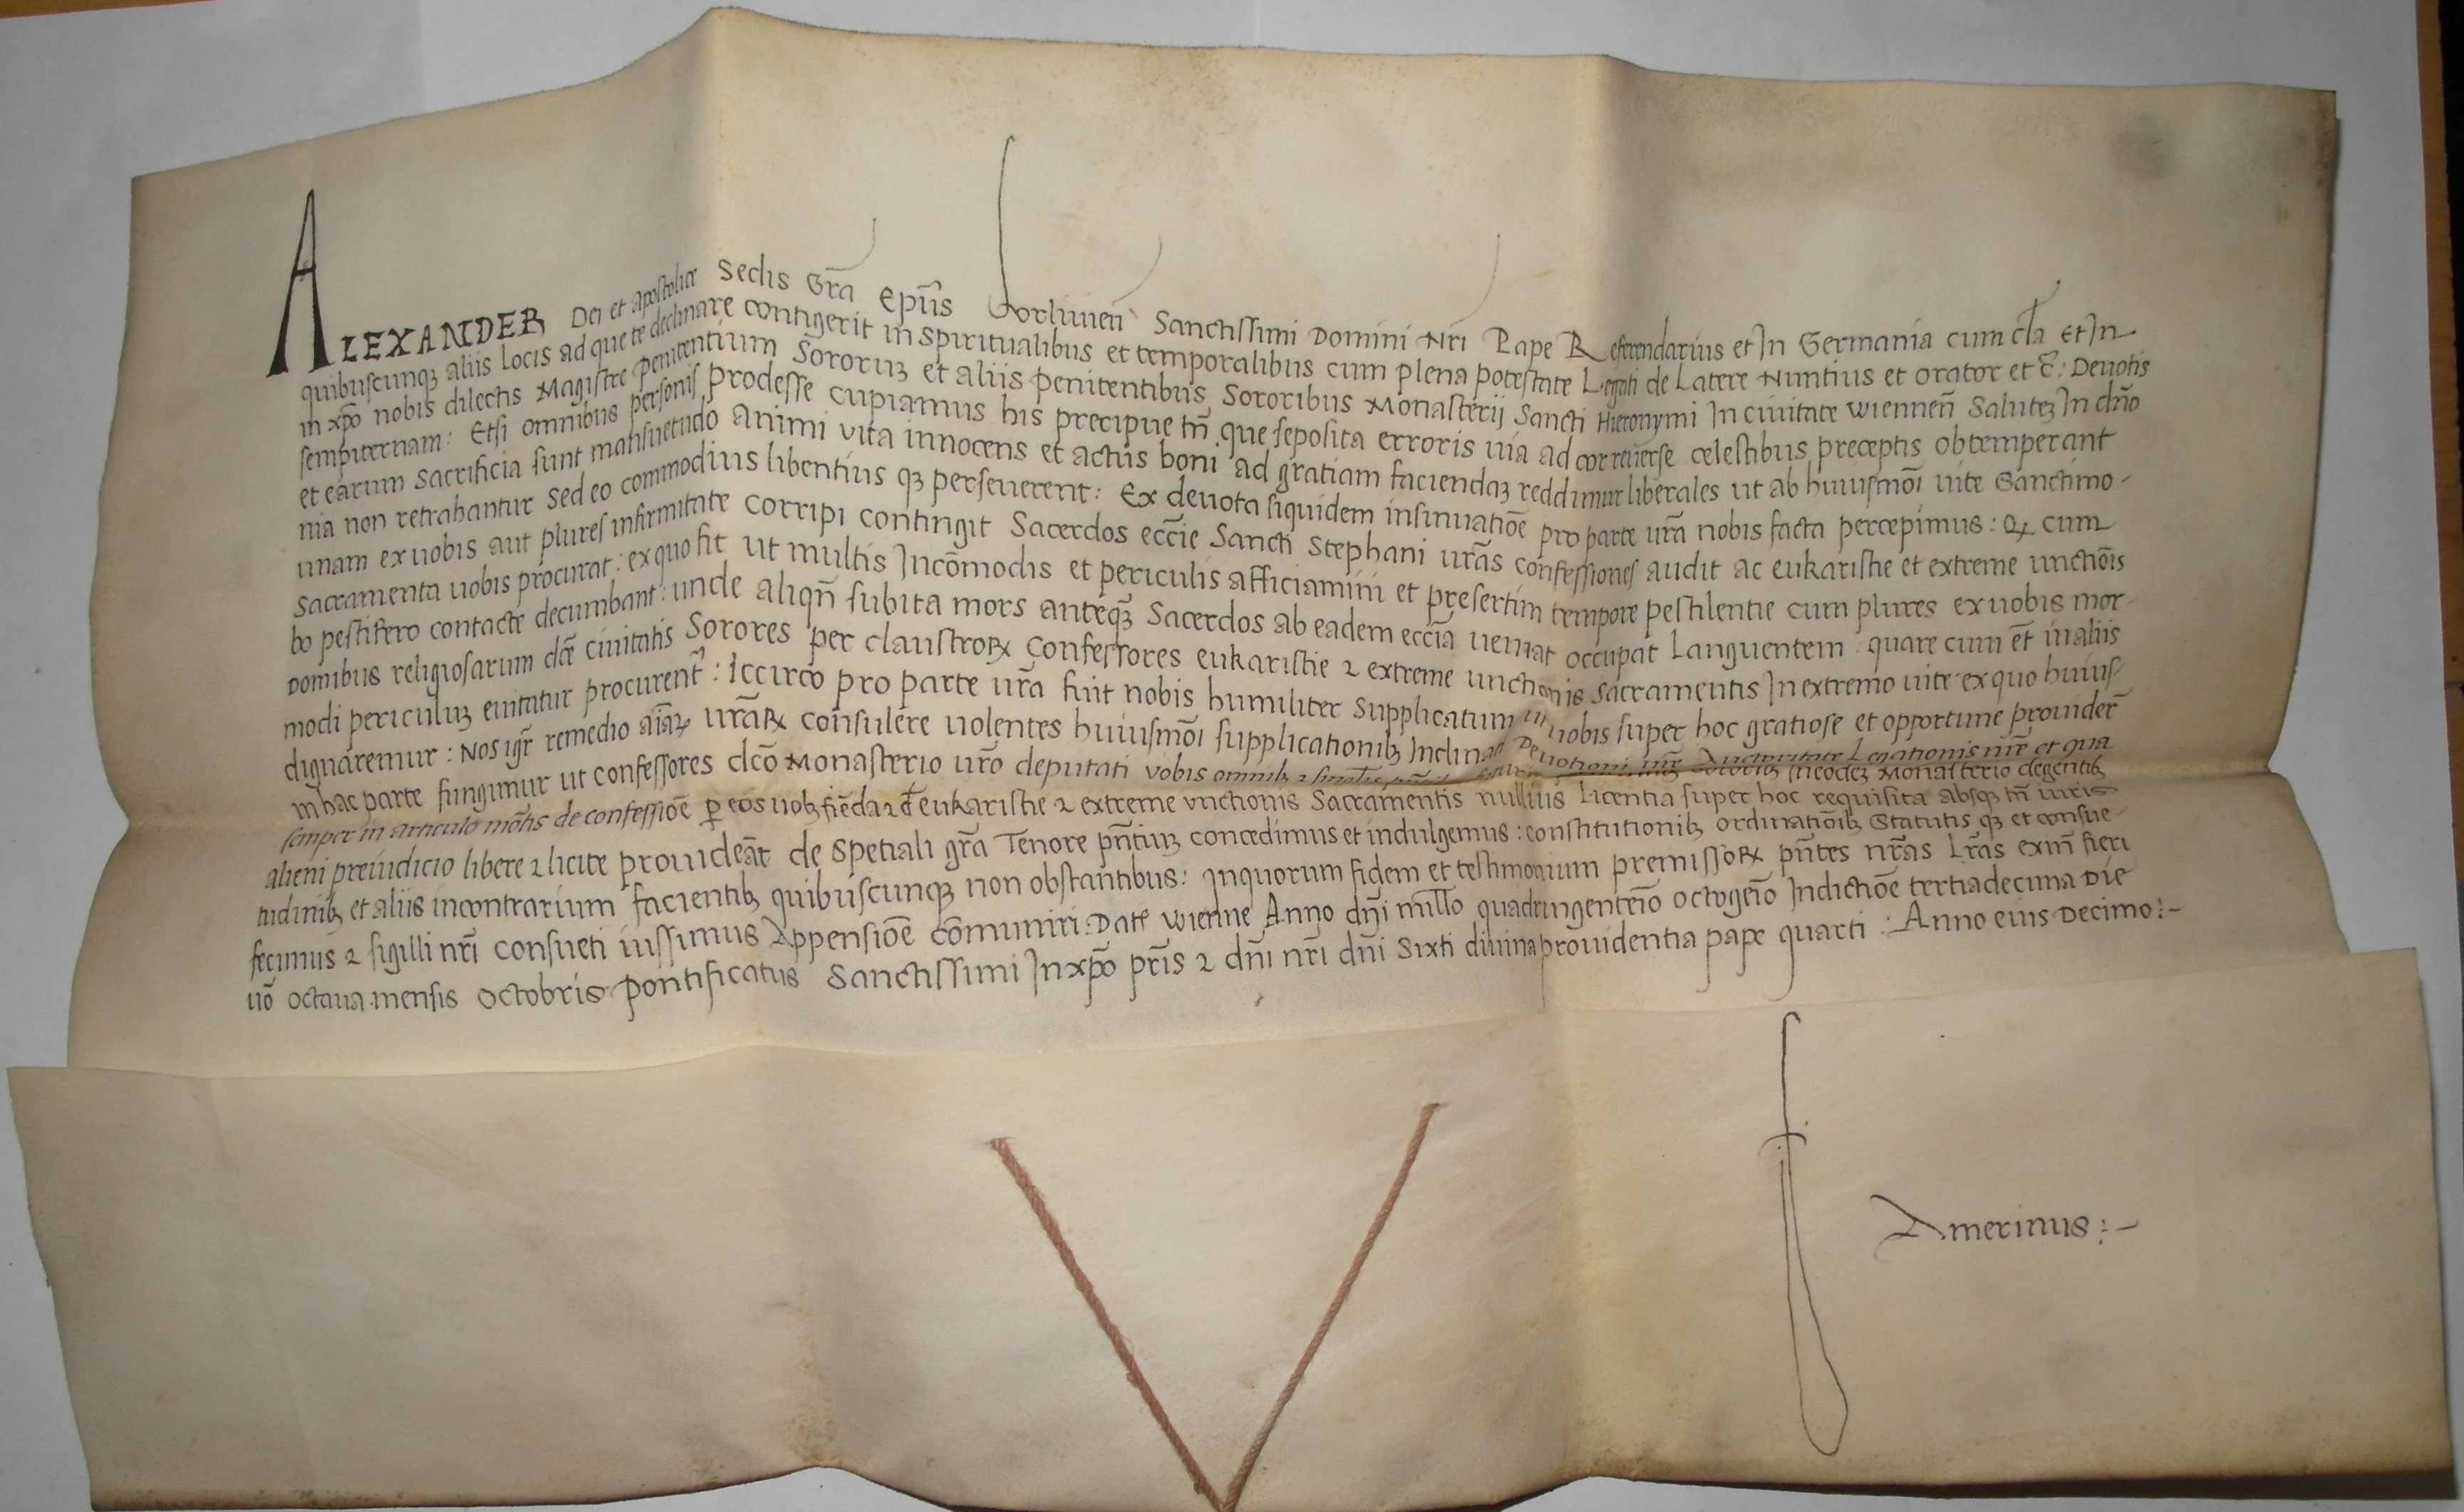 ALEXANDER Dei et apostolice Sedis Grã Epũs Forliuieñ Sanctissimi Domini Nri Pape Referendarius et In Germania cum cta Et In
quibuscunqꝫ aliis locis ad que te declinare contigerit in spiritualibus et temporalibus cum plena potestate Legati de Latere Nuntius et orator et c̃: Deuotis
in xp̃o nobis dilectis Magistre penitentium Sororuꝫ et aliis penitentibus Sororibus Monasterij Sancti Hieronymi In ciuitate wienneñ Saluteꝫ In dño
sempiternam: Etsi omnibus personis prodesse cupiamus his precipue tñ que seposita erroris uia ad cor reuerse celestibus preceptis obtemperant
et earum Sacrificia sunt mansuetudo animi vita innocens et actus boni ad gratiam faciendaꝫ reddimur liberales ut ab huiusmõi uite Sanctimo-
nia non retrahantur sed eo commodius libentius qꝫ perseuerent: Ex deuota siquidem insinuatiõe pro parte ur̃a nobis facta percepimus: Qꝫ cum
unam ex uobis aut plures infirmitate corripi contingit Sacerdos ecc̃ie Sancti Stephani ur̃as confessiones audit ac eukaristie et extreme unctiõis
Sacramenta uobis procurat: ex quo fit ut multis Incõmodis et periculis afficiamini et presertim tempore pestilentie cum plures ex uobis mor-
bo pestifero contacte decumbant: unde aliqñ subita mors anteqꝫ Sacerdos ab eadem ecc̃ia ueniat occupat Languentem: quare cum et̃ in aliis
Domibus religiosarum dc̃e ciuitatis Sorores per claustroꝝ Confessores eukaristie ⁊ extreme unctionis Sacramentis In extremo uite ex quo huius-
modi periculuꝫ euitatur procurent̃: Iccirco pro parte ur̃a fuit nobis humiliter Supplicatum ut uobis super hoc gratiose et opportune prouider̃
dignaremur: Nos igr̃ remedio aĩaꝝ ur̃aꝝ consulere uolentes huiusmõi supplicationibꝫ Inclinati Deuotioni ur̃e Auctoritate Legationis nr̃e et qua
in hac parte fungimur ut confessores dc̃o Monasterio ur̃o deputati vobis omnibꝫ ⁊ singulis Sororibꝫ In eodeꝫ Monasterio degentibꝫ
semper in articulo mõtis de confessiõe ꝑ eos uobꝫ fiẽda ⁊ d̃ eukaristie ⁊ extreme vnctionis Sacramentis nullius Licentia super hoc requisita absqꝫ tñ iuris
alieni preiudicio libere ⁊ licite prouideãt de spetiali gr̃a Tenore pñtiuꝫ concedimus et indulgemus: constitutionibꝫ ordinatiõibꝫ Statutis qꝫ et consue-
tudinibꝫ et aliis in contrarium facientibꝫ quibuscunqꝫ non obstantibus: In quorum fidem et testimonium premissoꝝ pñtes nr̃as Lr̃as exiñ fieri
fecimus ⁊ sigilli nr̃i consueti iussimus Appensiõe cõmuniri: Dat̃ wienne Anno dñi millõ quadringentẽio octogẽio Indictiõe tertiadecima Die
uõ octaua mensis octobris pontificatus Sanctissimi In xp̃o pr̃is ⁊ dñi nr̃i dñi Sixti diuina prouidentia pape quarti: Anno eius Decimo:-
Amerinus:-